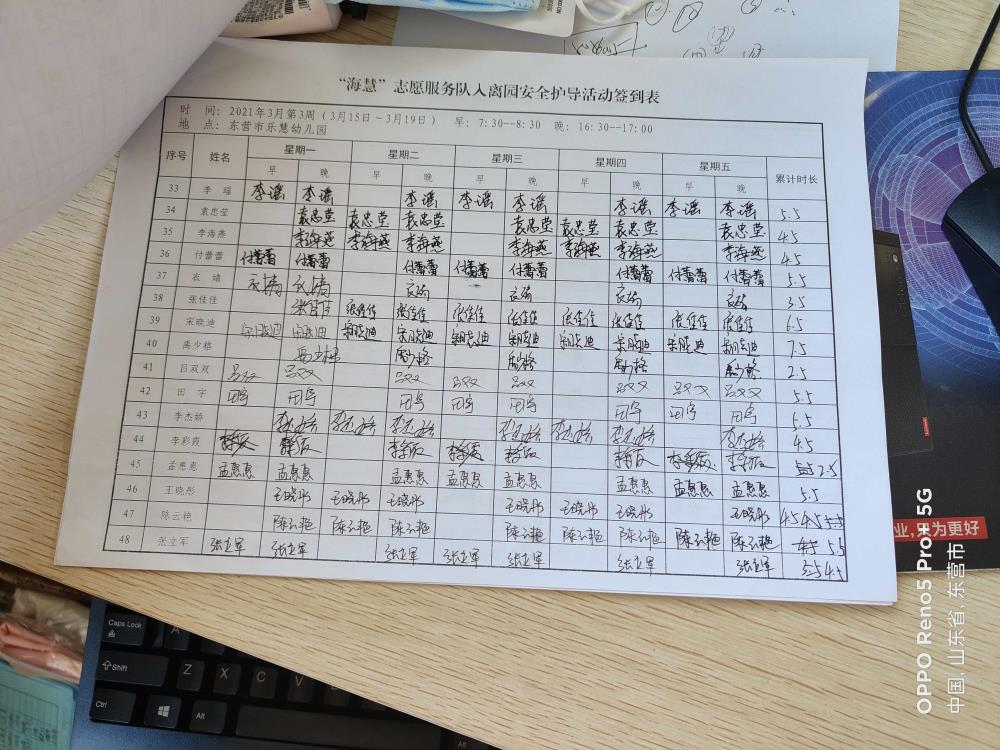 “海慧”志愿服务队入离园安全护导活动签到表
时 间：2021年3月第3周（3月15日－3月19日） 早：7:30--8:30 晚：16:30--17:00
地 点：东营市乐慧幼儿园
序号 姓名 星期一 星期二 星期三 星期四 星期五 累计时长
早 晚 早 晚 早 晚 早 晚 早 晚
33 李 瑶 李瑶 李瑶 李瑶 李瑶 李瑶 李瑶 李瑶 李瑶 5.5
34 袁忠莹 袁忠莹 袁忠莹 袁忠莹 袁忠莹 袁忠莹 袁忠莹 袁忠莹 4.5
35 李海燕 李海燕 李海燕 李海燕 李海燕 李海燕 李海燕 李海燕 4.5
36 付蕾蕾 付蕾蕾 付蕾蕾 付蕾蕾 付蕾蕾 付蕾蕾 付蕾蕾 付蕾蕾 付蕾蕾 5.5
37 衣 婧 衣婧 衣婧 衣婧 衣婧 衣婧 衣婧 3.5
38 张佳佳 张佳佳 张佳佳 张佳佳 张佳佳 张佳佳 张佳佳 张佳佳 张佳佳 张佳佳 6.5
39 宋晓迪 宋晓迪 宋晓迪 宋晓迪 宋晓迪 宋晓迪 宋晓迪 宋晓迪 宋晓迪 宋晓迪 宋晓迪 7.5
40 禹少格 禹少格 禹少格 禹少格 禹少格 禹少格 2.5
41 吕双双 吕双双 吕双双 吕双双 吕双双 吕双双 吕双双 吕双双 吕双双 5.5
42 田 宇 田宇 田宇 田宇 田宇 田宇 田宇 田宇 田宇 5.5
43 李杰娇 李杰娇 李杰娇 李杰娇 李杰娇 李杰娇 李杰娇 李杰娇 4.5
44 李彩霞 李彩霞 李彩霞 李彩霞 李彩霞 李彩霞 李彩霞 2.5
45 孟惠惠 孟惠惠 孟惠惠 孟惠惠 孟惠惠 孟惠惠 孟惠惠 孟惠惠 孟惠惠 5.5
46 王晓彤 王晓彤 王晓彤 王晓彤 王晓彤 王晓彤 王晓彤 王晓彤 4.5 4.5
47 陈云艳 陈云艳 陈云艳 陈云艳 陈云艳 陈云艳 陈云艳 陈云艳 陈云艳 5.5
48 张立军 张立军 张立军 张立军 张立军 张立军 张立军 张立军 4.5
业，来为更好
Caps Lock
A
Shift
Z
X
C
V
Ctrl
Alt
Alt
OPPO Reno5 Pro+ 5G
中国, 山东省, 东营市